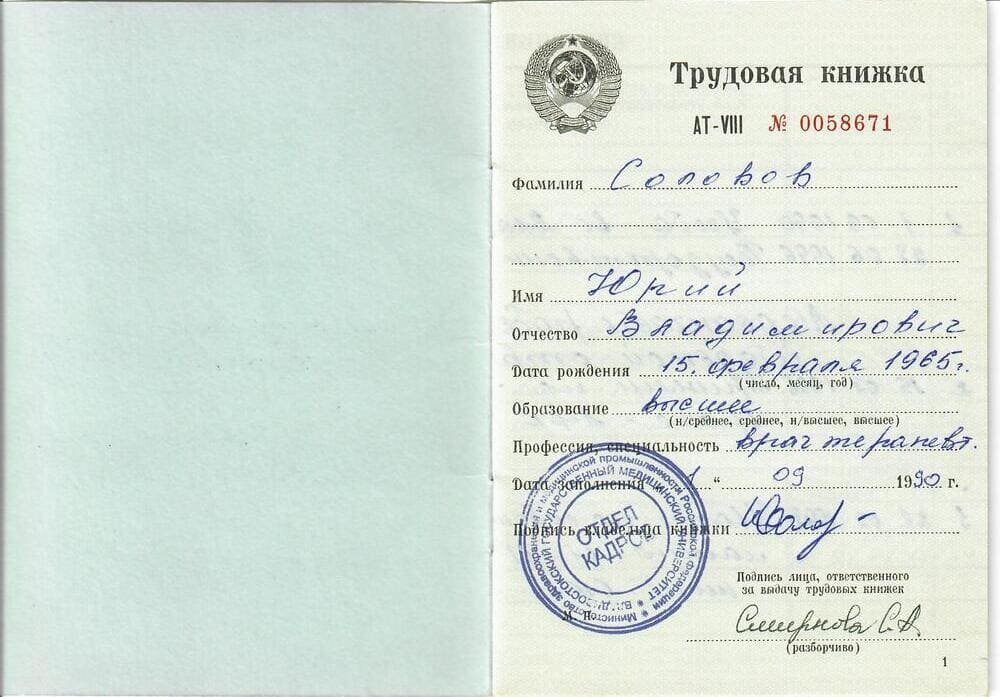 Трудовая книжка
АТ-VIII № 0058671
Фамилия Соловов
Имя Юрий
Отчество Владимирович
Дата рождения 15. февраля 1965г.
(число, месяц, год)
Образование высшее
(н/среднее, среднее, н/высшее, высшее)
Профессия, специальность врач терапевт.
Дата заполнения "1" 09 1990 г.
Подпись владельца книжки
Министерство здравоохранения и медицинской промышленности Российской Федерации
ВЛАДИВОСТОКСКИЙ ГОСУДАРСТВЕННЫЙ МЕДИЦИНСКИЙ УНИВЕРСИТЕТ
ОТДЕЛ
КАДРОВ
Подпись лица, ответственного
за выдачу трудовых книжек
М. П.
Смирнова С.А
(разборчиво)
1